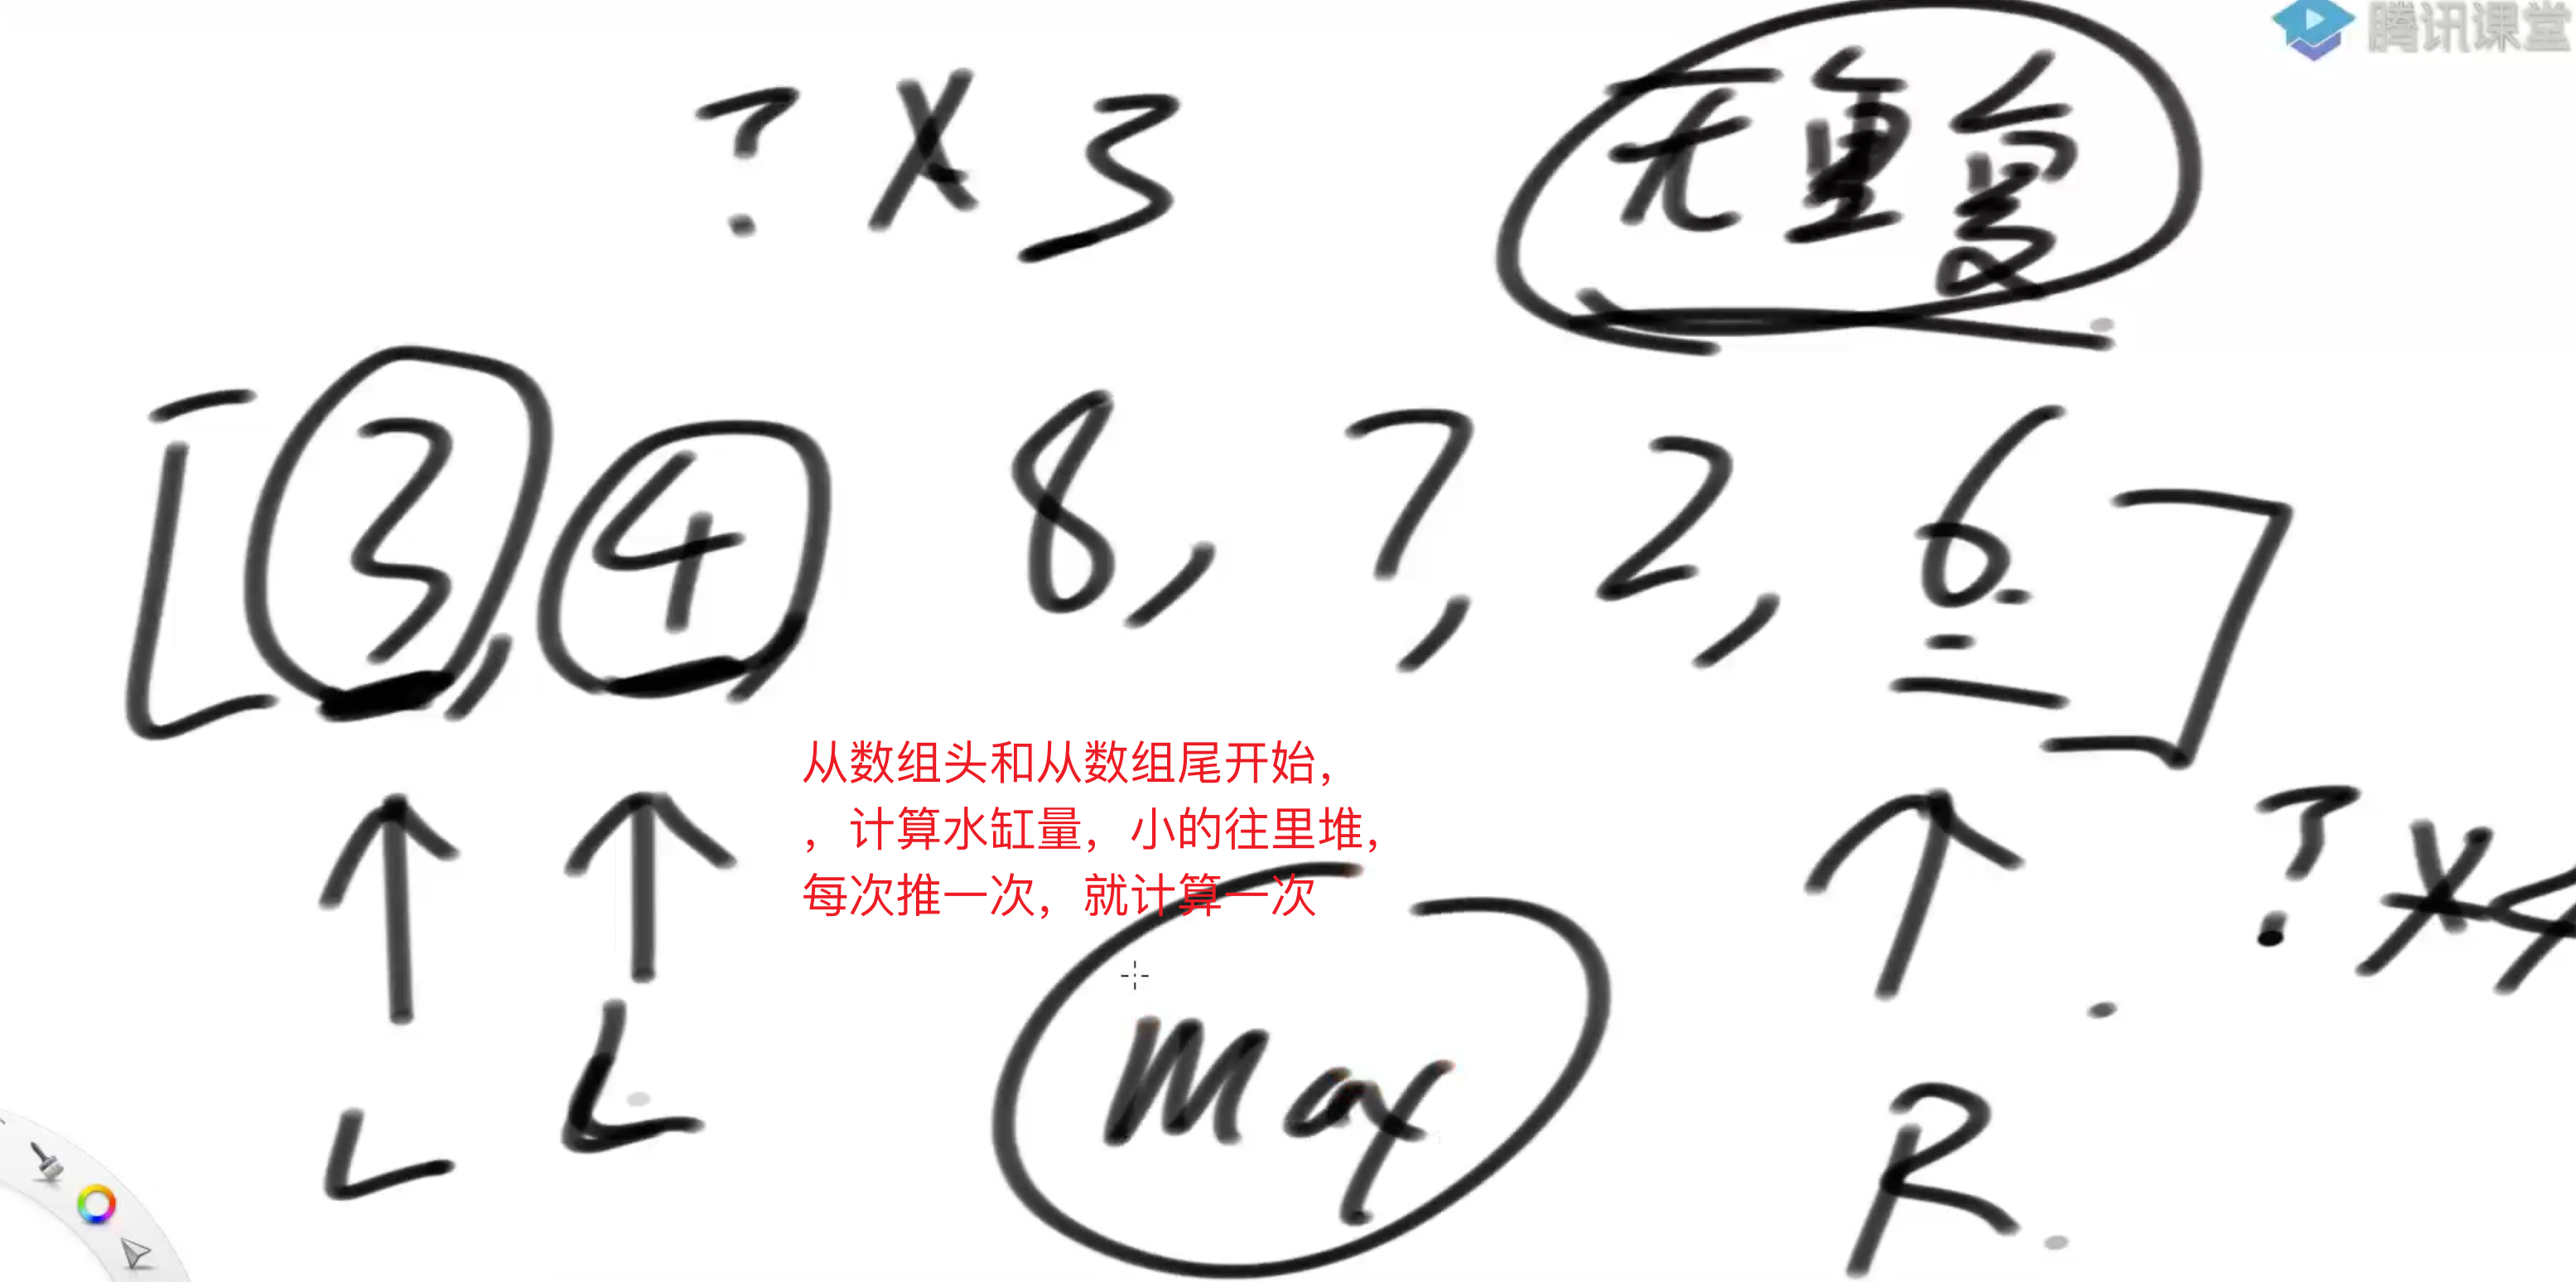 腾讯课堂
? X 3
无重复
[3, 4, 8, 7, 2, 6]
从数组头和从数组尾开始，
，计算水缸量，小的往里堆，
每次推一次，就计算一次
? X 4
Max
L
L
R